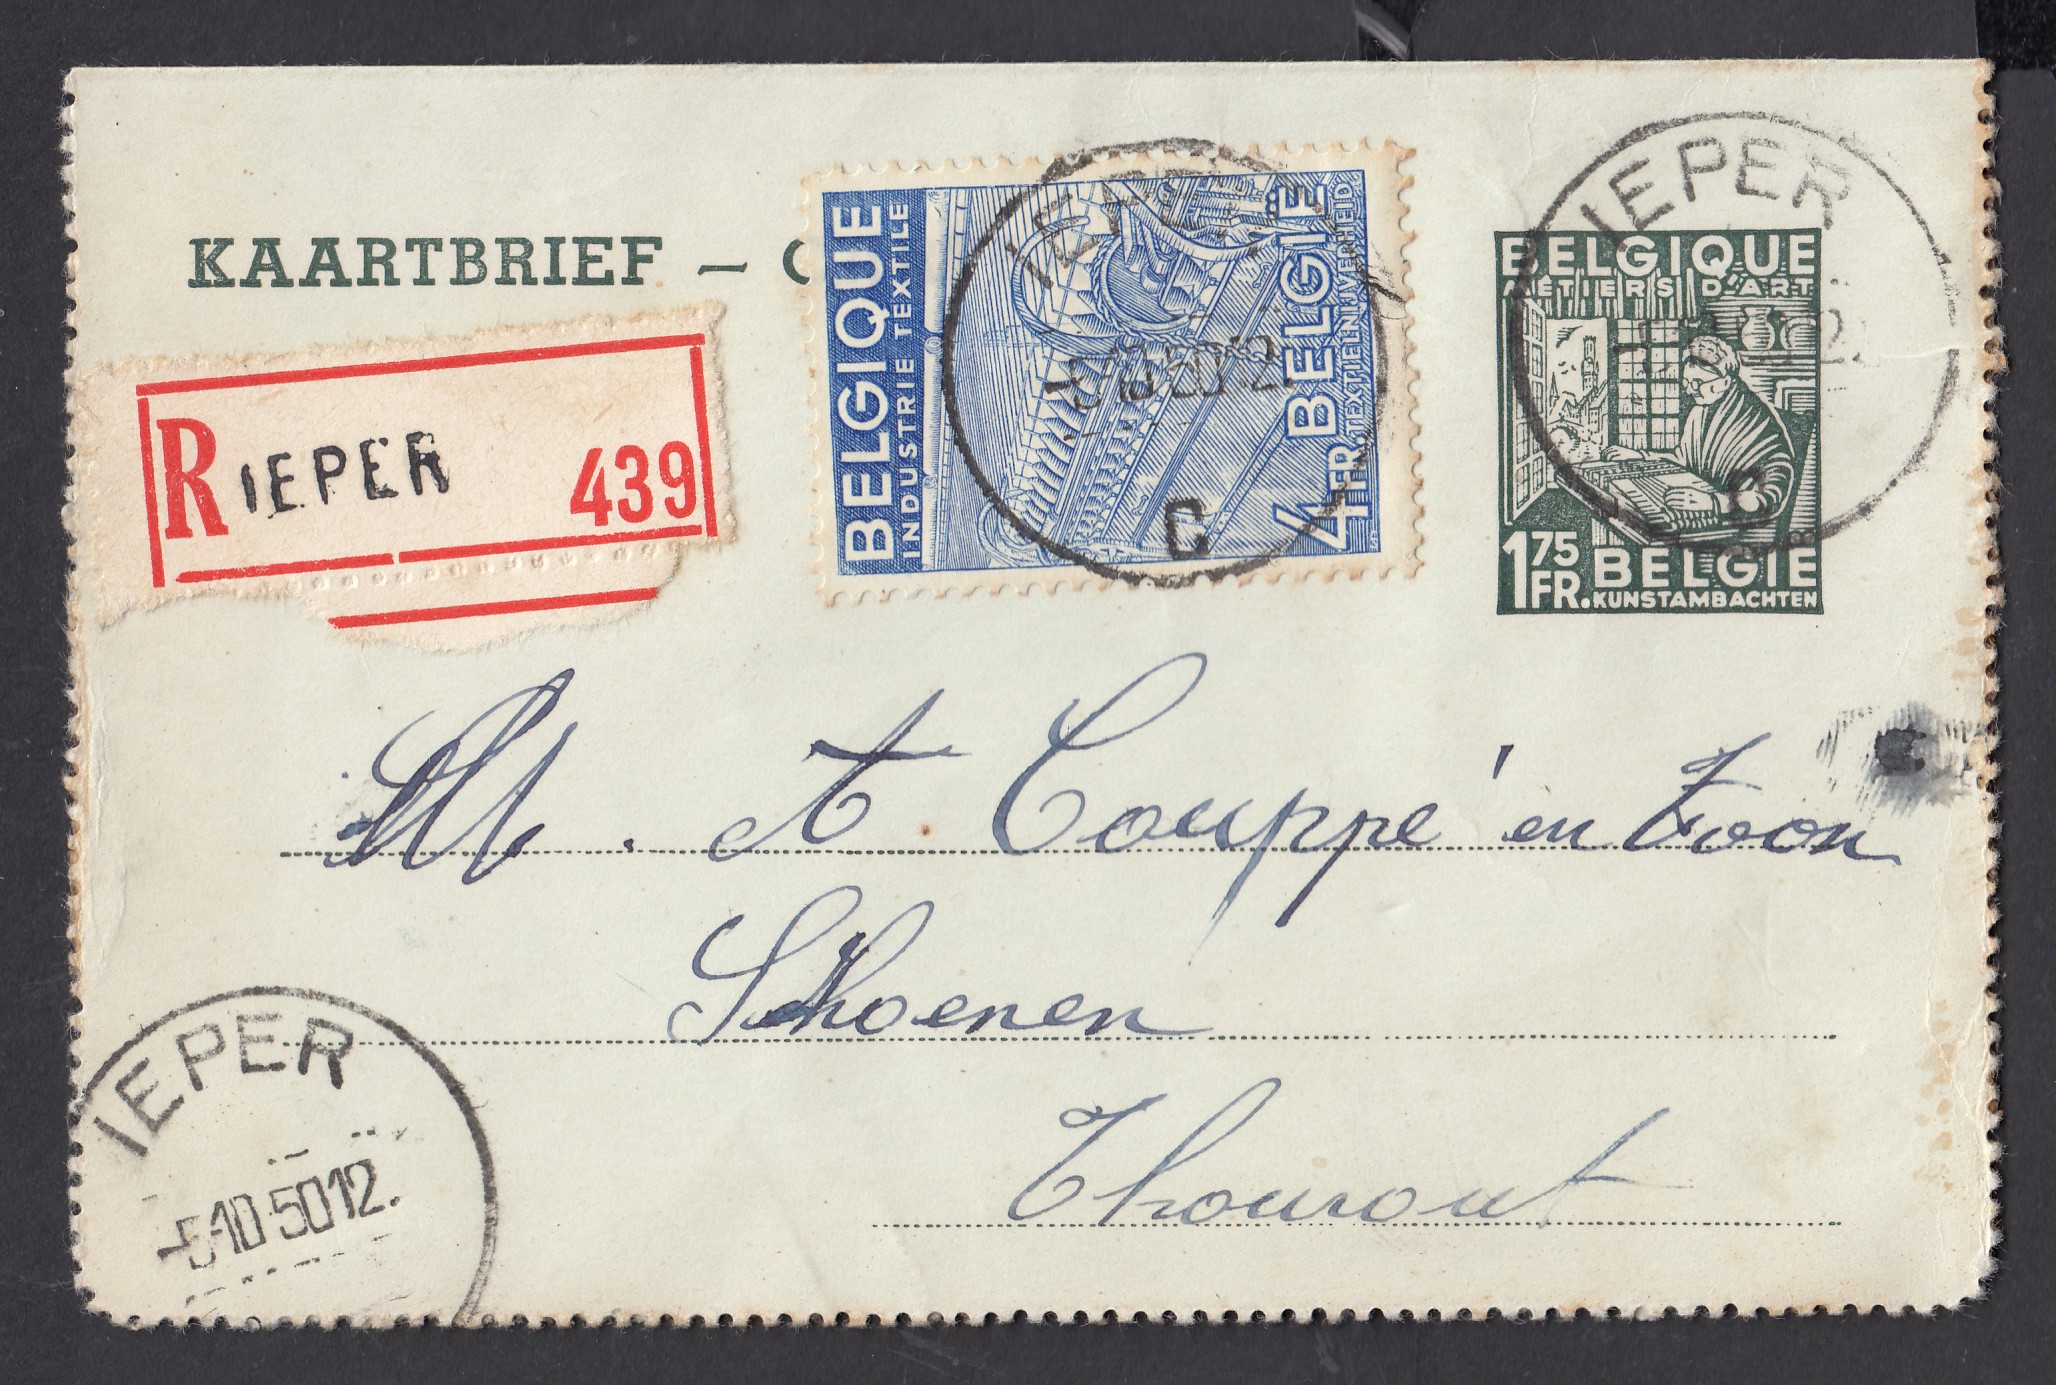 KAARTBRIEF – C
R IEPER 439
BELGIQUE
INDUSTRIE TEXTILE
BELGIË
TEXTIELNIJVERHEID
4 FR.
IEPER
-5-10 50 12
C
BELGIQUE
MÉTIERS D'ART
1 75 FR. BELGIE
KUNSTAMBACHTEN
IEPER
C
M. A. Couppé en Zoon
Schoenen
Thourout
IEPER
-5-10 50 12.